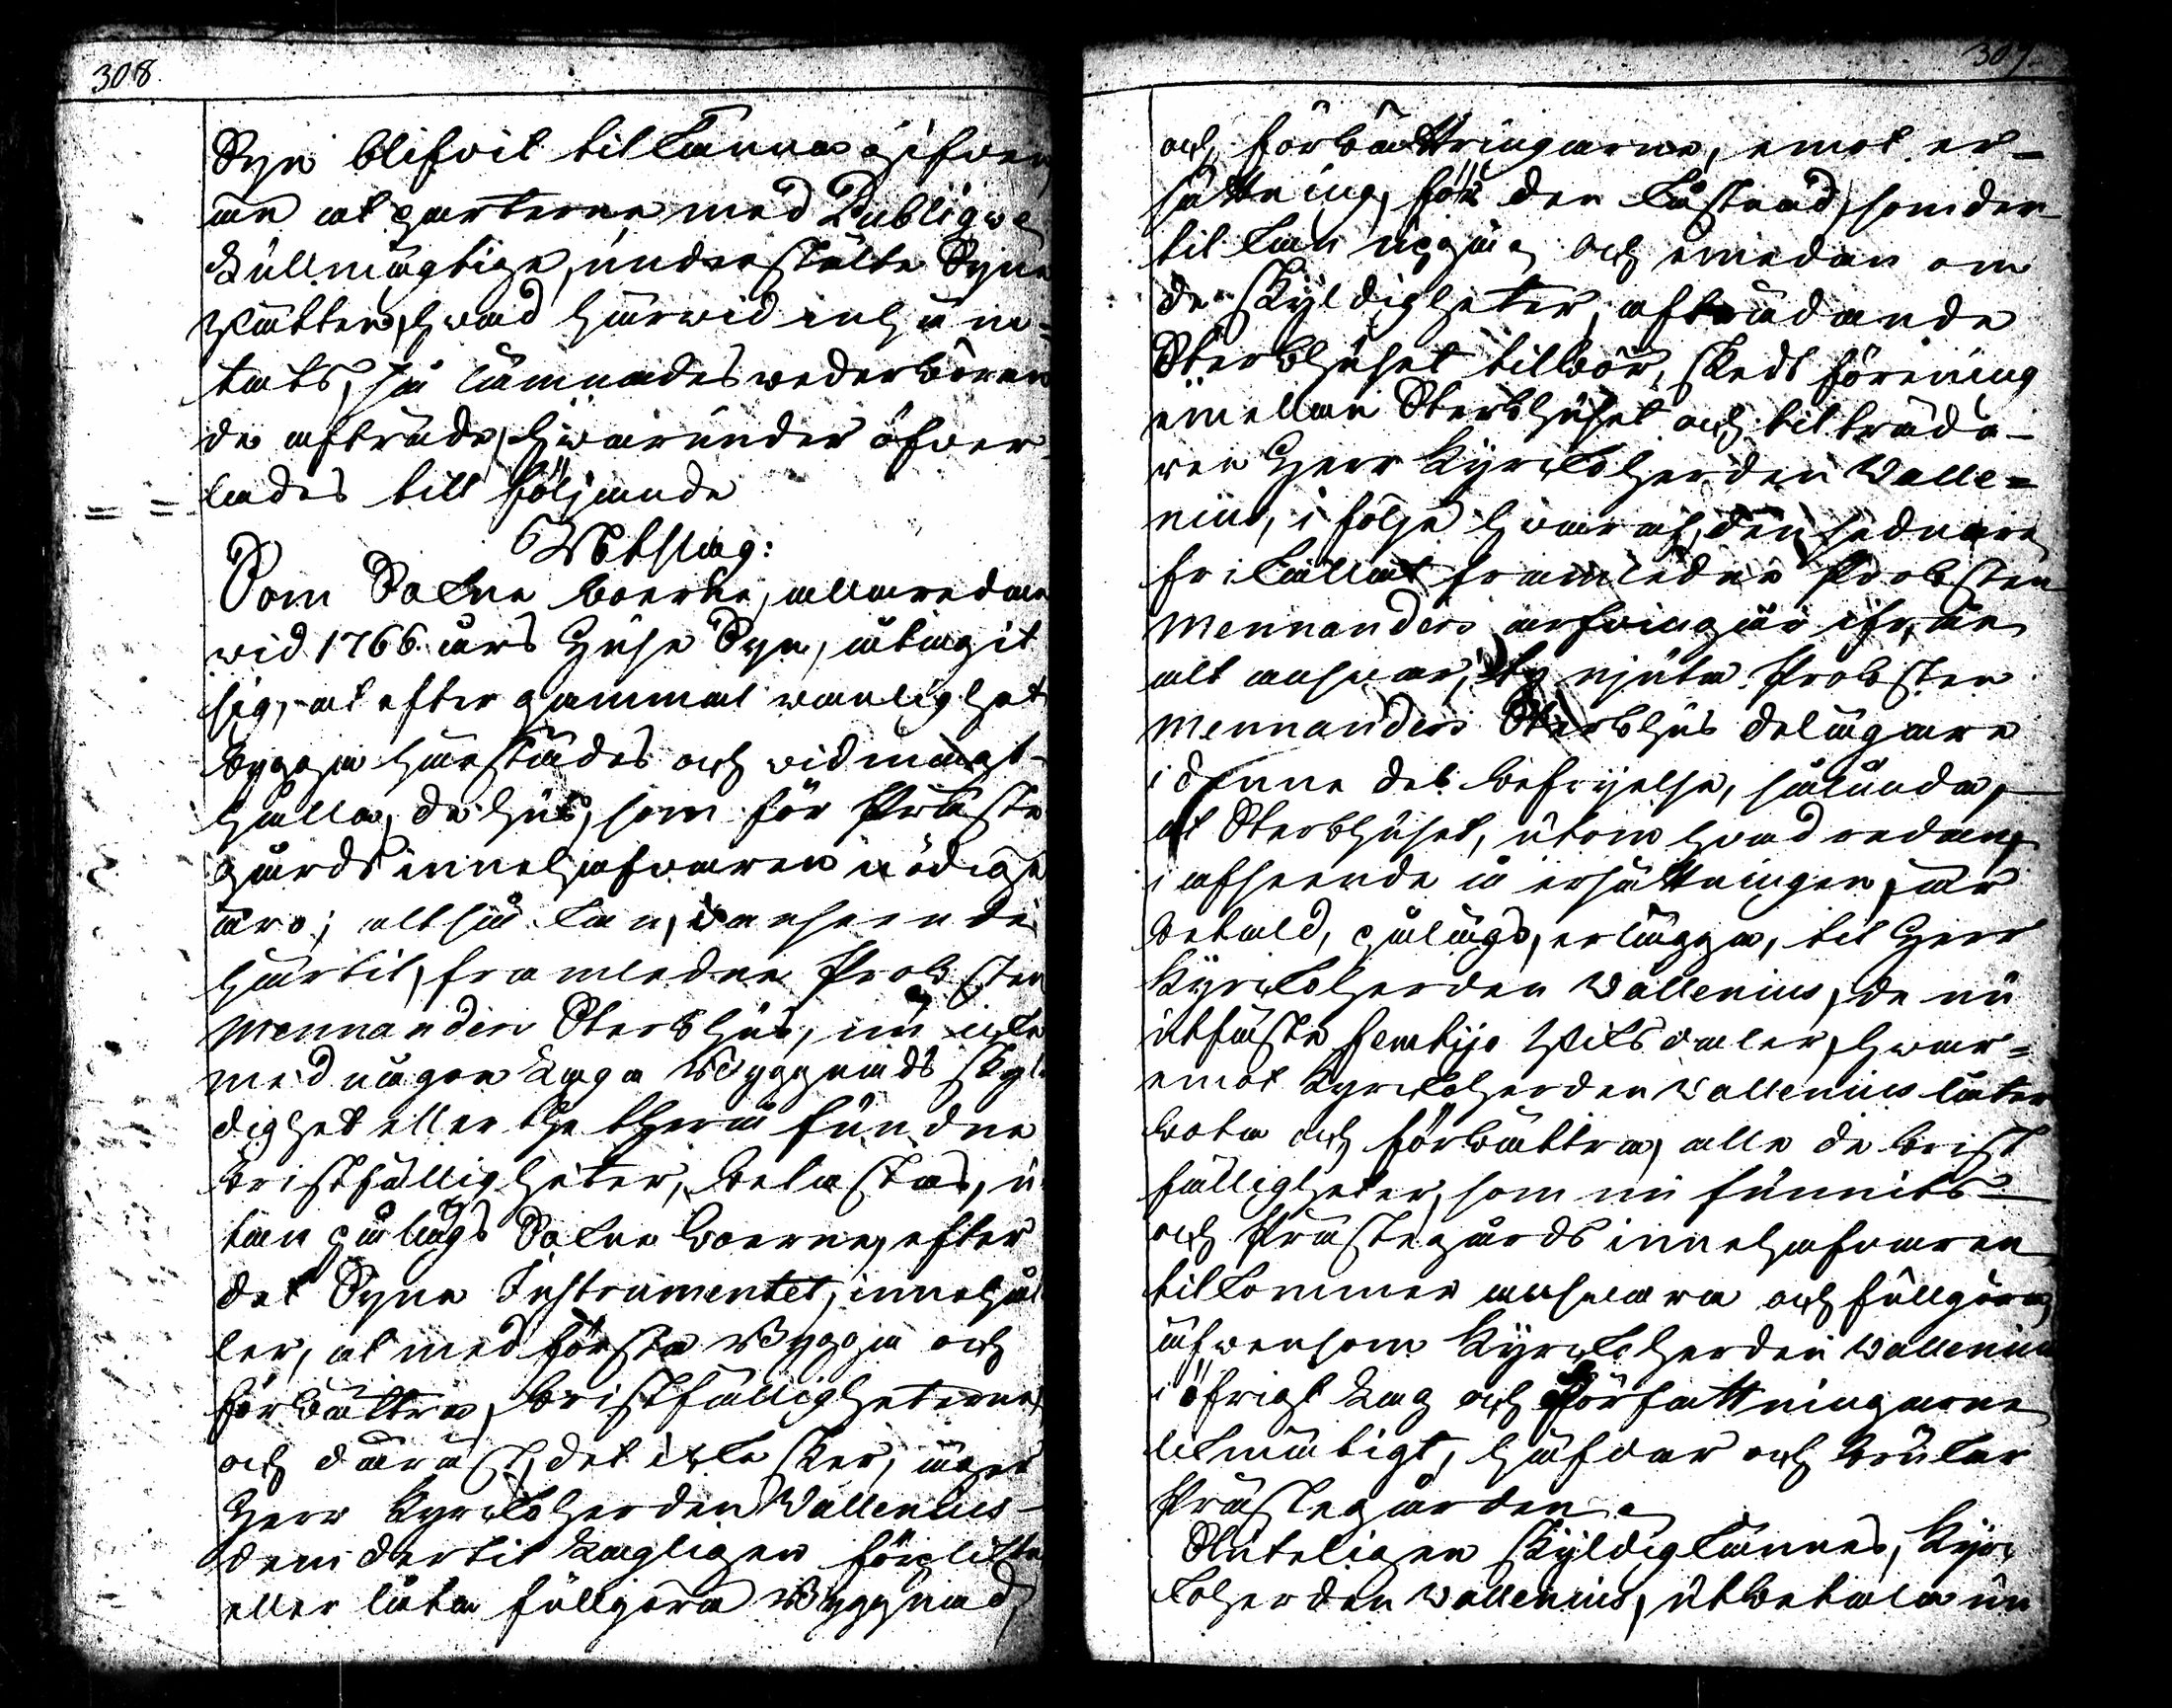 308.
Syn blifvit tillkänna gifven
än at parterne med Publiqve
Fullmägtige, understälte Syne
Rätten, hvad härvid inhäm-
tats, så lämnades vederböran
de afträde, hvarunder öfver
lades till följande
Utslag:
Som Sokne boerne, allaredan
vid 1766. års Huse Syn, åtagit
sig, at efter gammal vanlighet
bygga härstädes och vidmagt-
hålla, de hus, som för Präste
gårds innehafvaren nödige
äro; altså kan, i anseende
härtil, framledne Probsten
Mennanders Sterbhus, nu icke
med någon Laga Byggnads skyl-
dighet eller the therå fundne
bristfälligheter, belastas, u-
tan åläggs Sokne boerne, efter
det Syne Instrumentet, innehål
ler, at med första Bygga och
förbättra bristfälligheterne,
och därest det icke sker, äger
Herr Kyrckoherden Wallenius
dem dertil Lagligen förplikta
eller låta fullgöra Byggnad
307.
och förbättringarne, emot er-
sättning, för den kåstnad, som der
til kan uppgå och emedan om
de skyldigheter, afträdande
Sterbhuset tillhör, skedt förening
emellan Sterbhuset och tillträda-
ren Herr Kyrckoherden Walle-
nius, i följe hvaraf den sednare
frikallat framledne Probsten
Mennanders arfvingar ifrån
alt ansvar, Ty njuta Probsten
Mennanders Sterbhus delägare
i denne del befrijelse, sålunda,
at Sterbhuset, utom hvad redan
i afseende å ersättningen, är
betald, åläggs, erlägga, til Herr
Kyrckoherden Wallenius, de nu
utfäste femtijo Riksdaler, hvar-
emot Kyrckoherden Wallenius låter
bota och förbättra, alle de brist
fälligheter, som nu funnits
och Prästegårds innehafvaren
tilkommer ansvara och fullgöra
äfvensom Kyrckoherden Wallenius
i öfrigt Lag och Författningarne
likmätigt, häfdar och brukar
Prästegården.
Sluteligen skyldigkännes, Kyrc
koherden Wallenius, utbetala nu